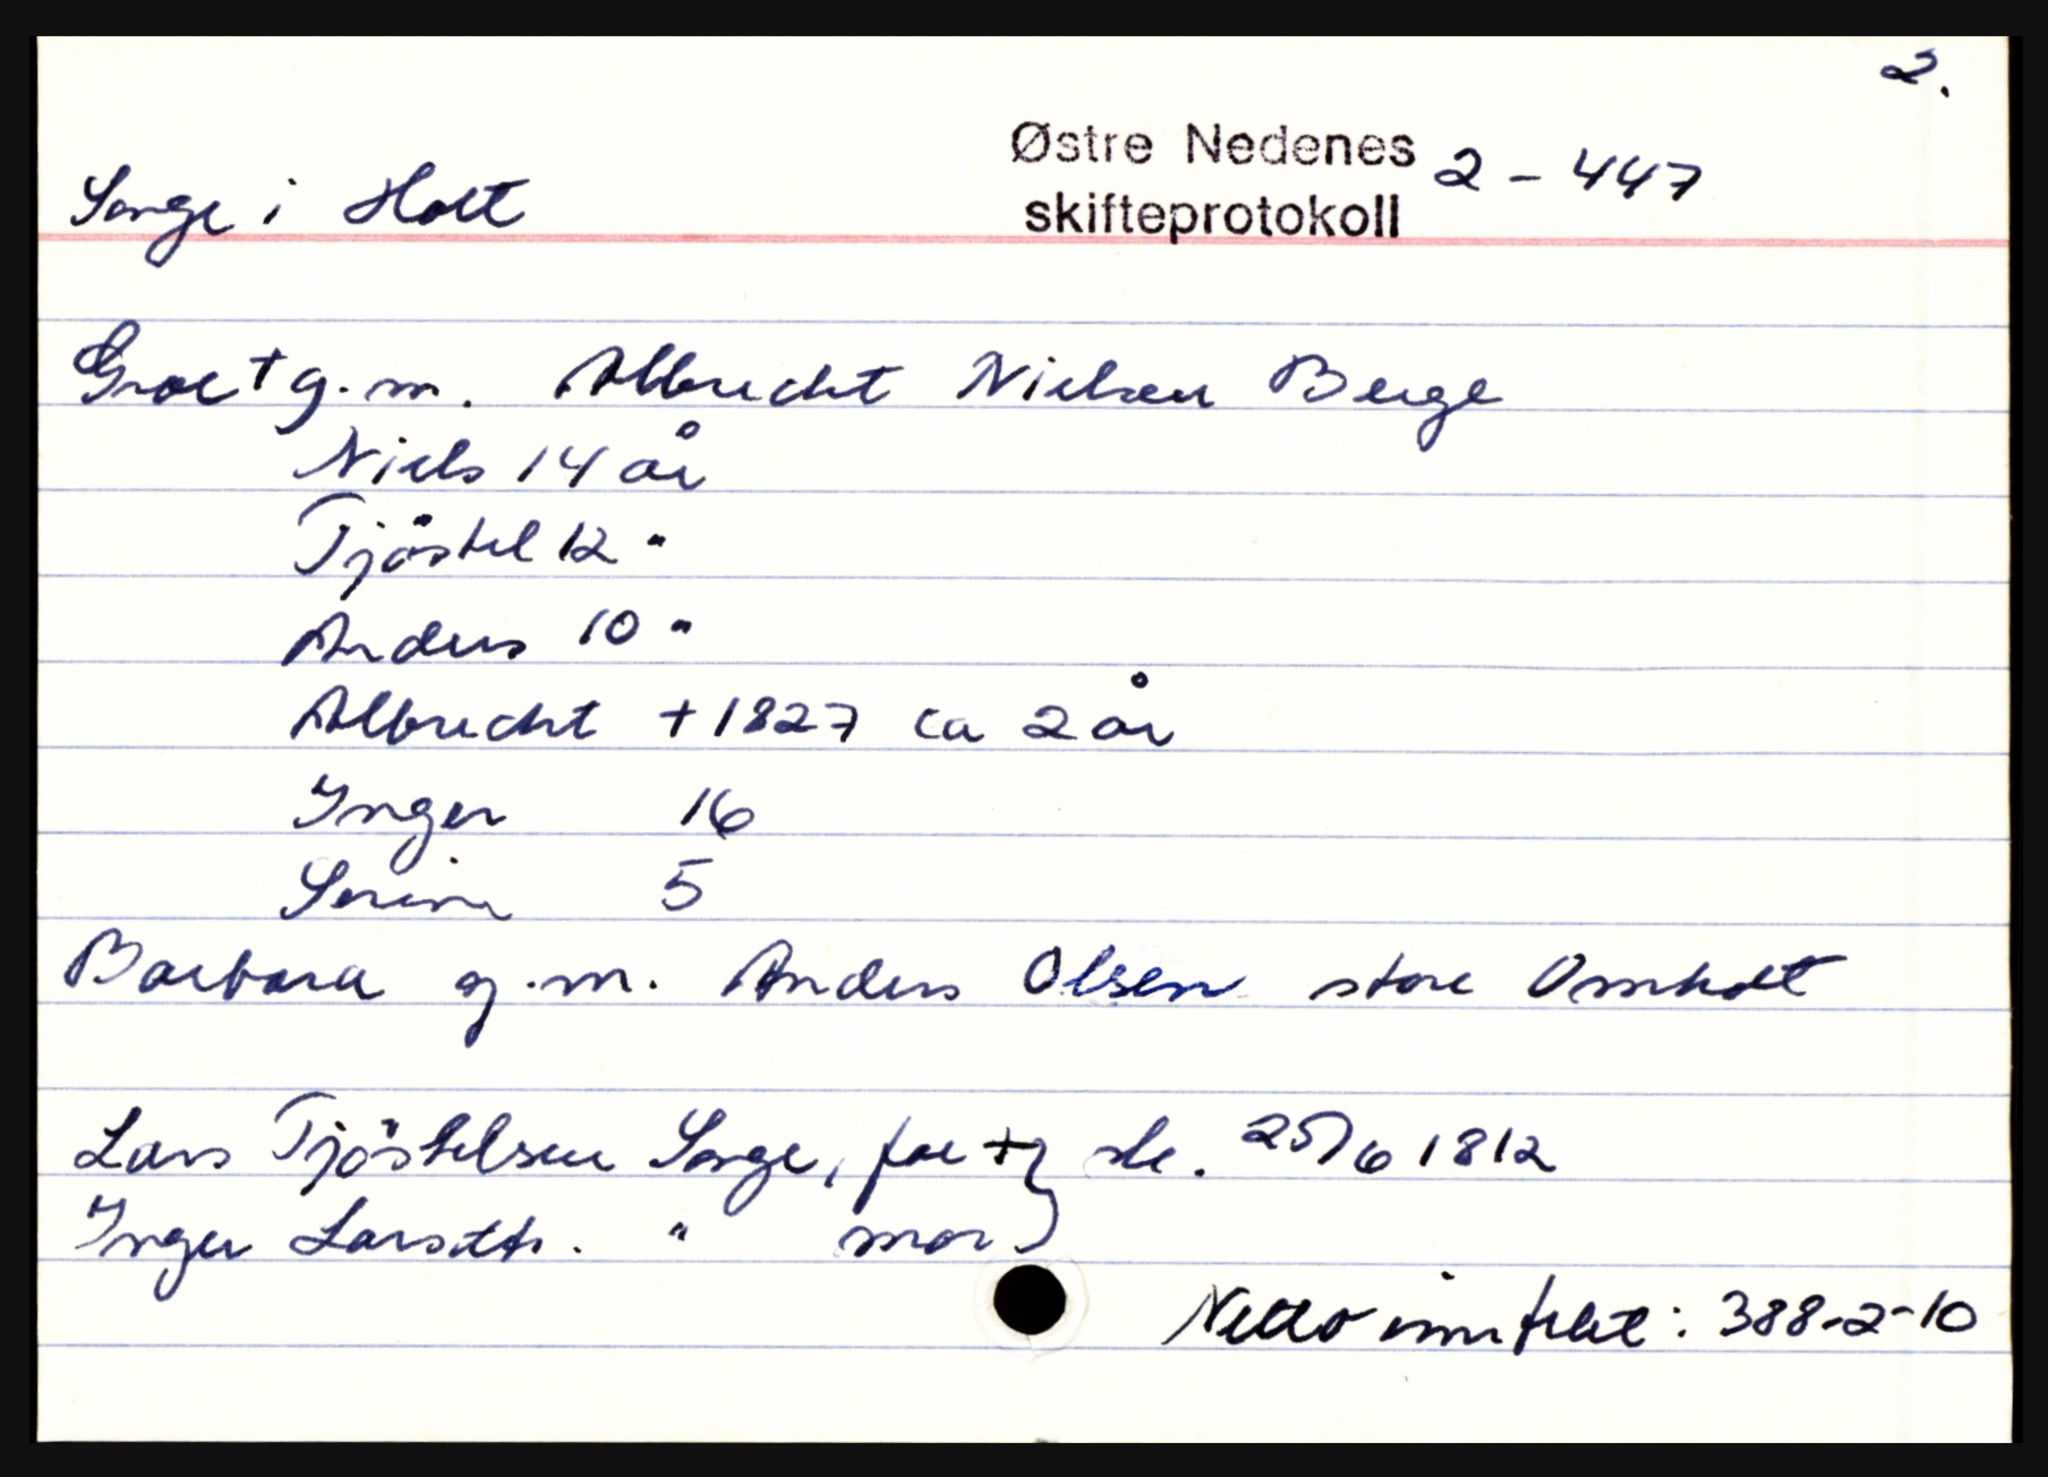 2.
Østre Nedenes 2 - 447
Songe i Holt skifteprotokoll
Groe + g. m. Albrecht Nielsen Berge
Niels 14 år
Tjöstel 12 "
Anders 10 "
Albrecht + 1827 ca 2 år
Inger 16
Serine 5
Barbara g. m. Anders Olsen store Omholt
Lars Tjöstelsen Songe, far + } 25/6 1812
Inger Larsdtr. " mor
Netto : 388-2-10